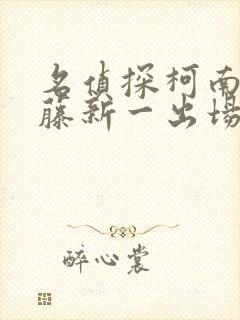 名偵探柯南
藤新一出場
醉心裳